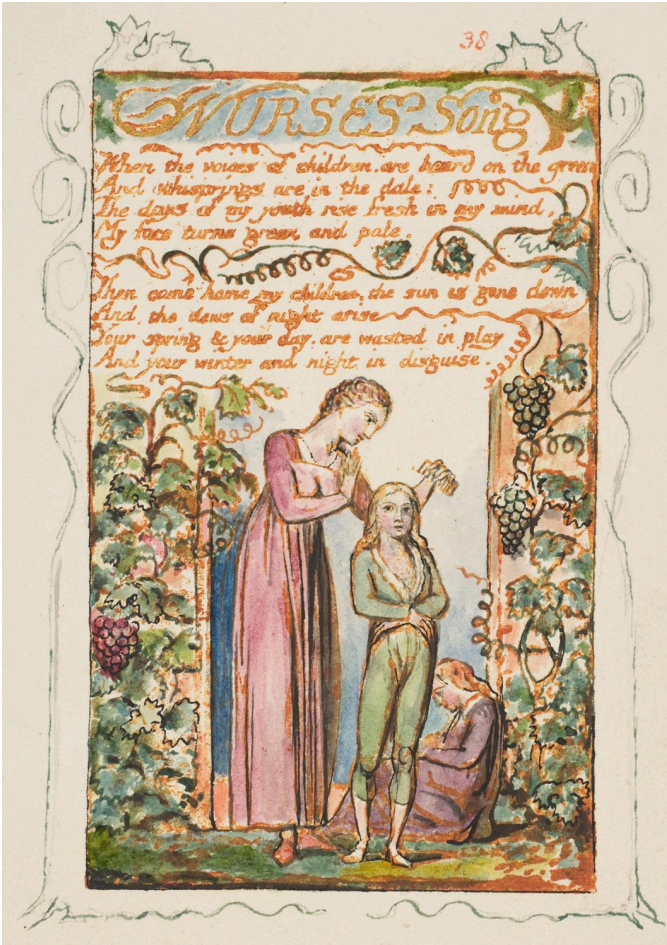 38
NURSES Song
When the voices of children. are heard on the green
And whisprings are in the dale:
The days of my youth rise fresh in my mind,
My face turns green and pale.
Then come home my children, the sun is gone down
And the dews of night arise
Your spring & your day. are wasted in play
And your winter and night in disguise.